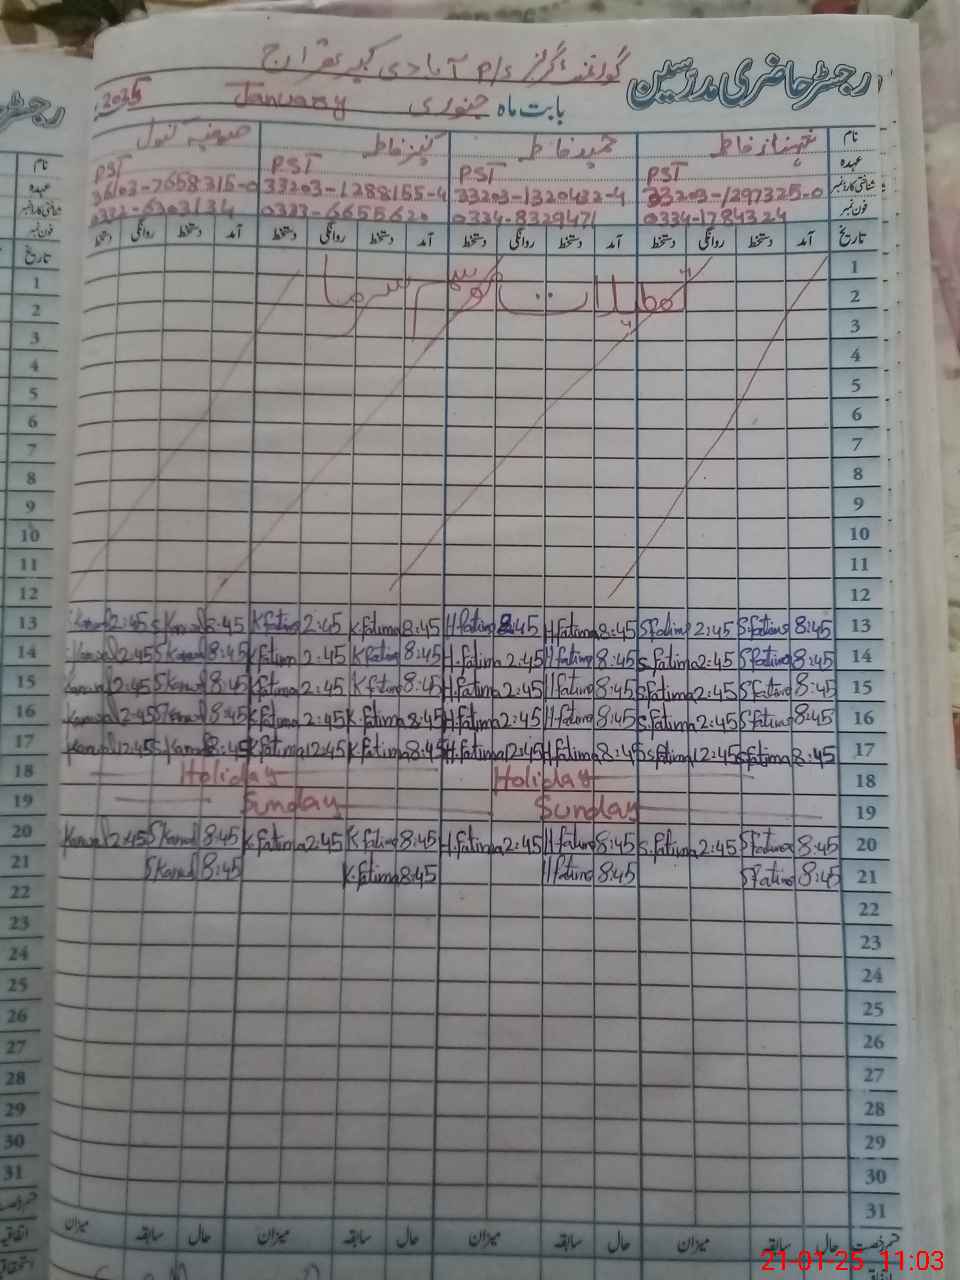 رجسٹر حاضری مدرسین
گورنمنٹ گرلز P/S آبادی
بابت ماہ جنوری January 2025
نام شہناز فاطمہ حمید فاطمہ کنیز فاطمہ صفیہ کنول
عہدہ PST PST P.ST PST
شناختی کارڈ نمبر 33203-1297325-0 33203-1320432-4 33203-1288155-4 36103-7658315-0
فون نمبر 0334-1784324 0334-8329471 0323-6655620 0322-6303134
تاریخ آمد دستخط روانگی دستخط آمد دستخط روانگی دستخط آمد دستخط روانگی دستخط آمد دستخط روانگی دستخط
1
2 تعطیلات موسم سرما
3
4
5
6
7
8
9
10
11
12
13 8:45 S.Fatima 2:45 S.Fatima 8:45 H.fatima 2:45 H.fatima 8:45 K.fatima 2:45 K.fatima 8:45 S.Kanwal 2:45 Kanwal
14 8:45 S.Fatima 2:45 S.fatima 8:45 H.fatima 2:45 H.fatima 8:45 K.fatima 2:45 K.fatima 8:45 S.Kanwal 2:45 Kanwal
15 8:45 S.Fatima 2:45 S.fatima 8:45 H.fatima 2:45 H.fatima 8:45 K.fatima 2:45 K.fatima 8:45 S.Kanwal 2:45 Kanwal
16 8:45 S.Fatima 2:45 S.fatima 8:45 H.fatima 2:45 H.fatima 8:45 K.fatima 2:45 K.fatima 8:45 S.Kanwal 2:45 Kanwal
17 8:45 S.fatima 12:45 S.fatima 8:45 H.fatima 12:45 H.fatima 8:45 K.fatima 12:45 K.fatima 8:45 S.Kanwal 12:45 Kanwal
18 Holiday Holiday
19 Sunday Sunday
20 8:45 S.Fatima 2:45 S.fatima 8:45 H.fatima 2:45 H.fatima 8:45 K.fatima 2:45 K.fatima 8:45 S.Kanwal 2:45 Kanwal
21 8:45 S.Fatima 8:45 H.fatima 8:45 K.fatima 8:45 S.Kanwal
22
23
24
25
26
27
28
29
30
31
قسم رخصت حال سابقہ میزان حال سابقہ میزان حال سابقہ میزان حال سابقہ میزان
اتفاقیہ
21-01-25 11:03